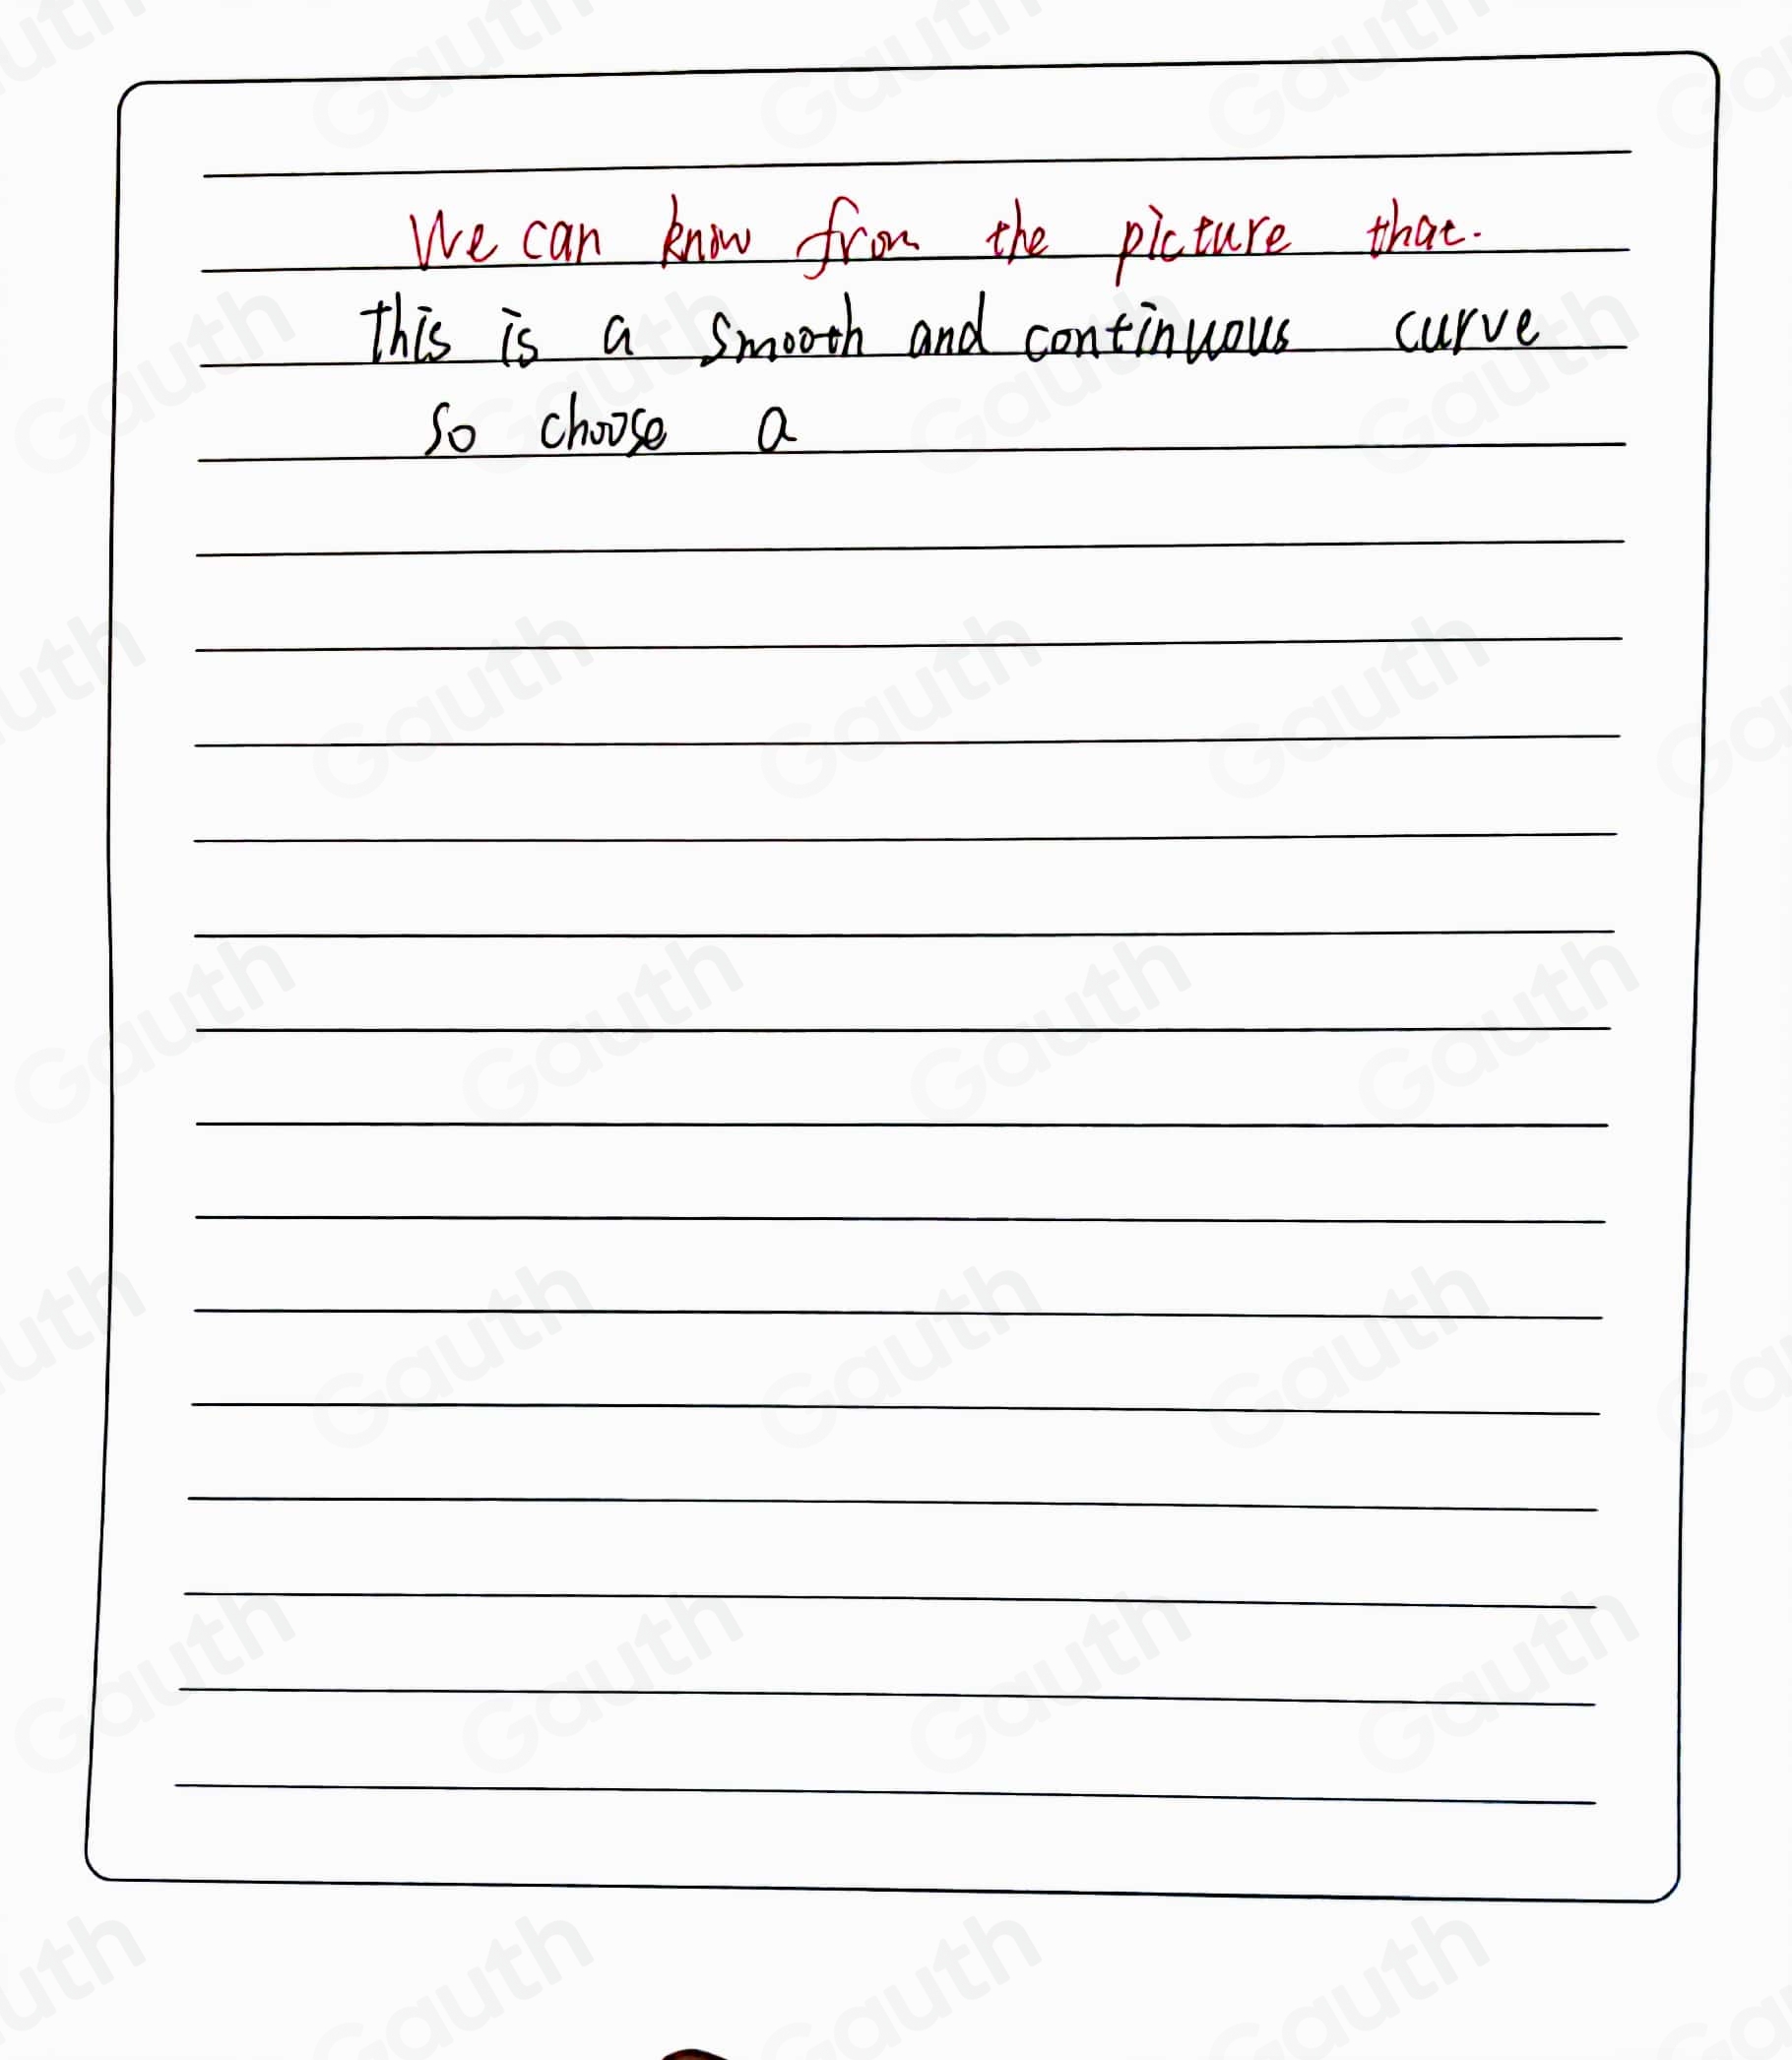 We can know from the picture that.
This is a smooth and continuous curve
so choose a